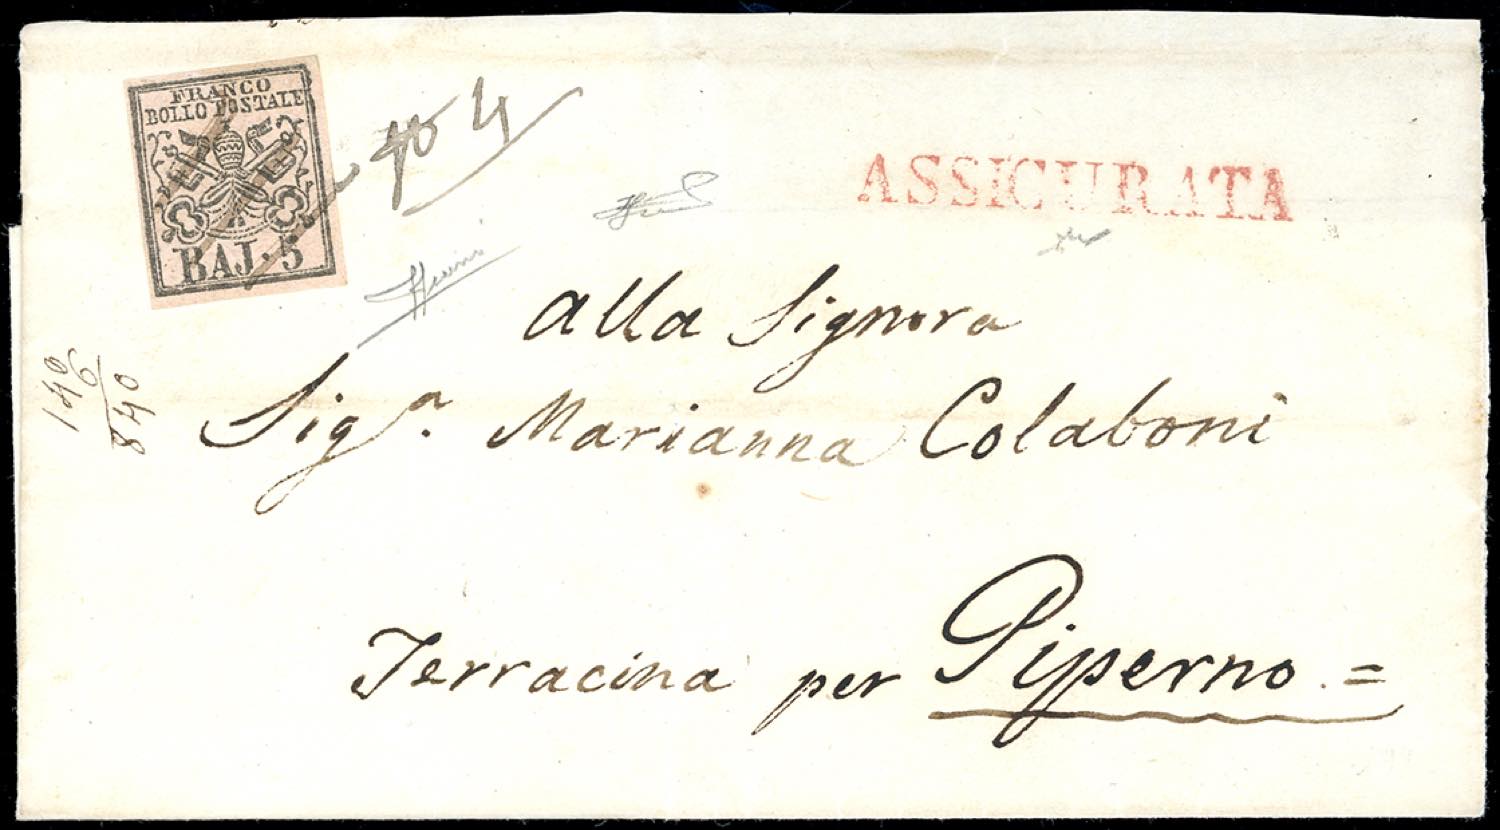 FRANCO
BOLLO POSTALE
BAJ. 5
ASSICURATA
alla Signora
Sigra. Marianna Colaboni
Terracina per Piperno =
140
6
840